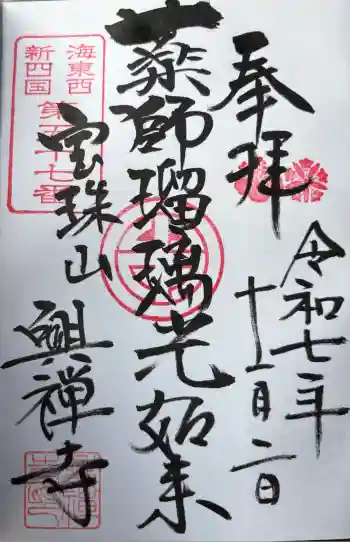 奉拝
令和七年
十一月二日
薬師瑠璃光如来
海東西
新四国
第五十七番
宝珠山
興禅寺